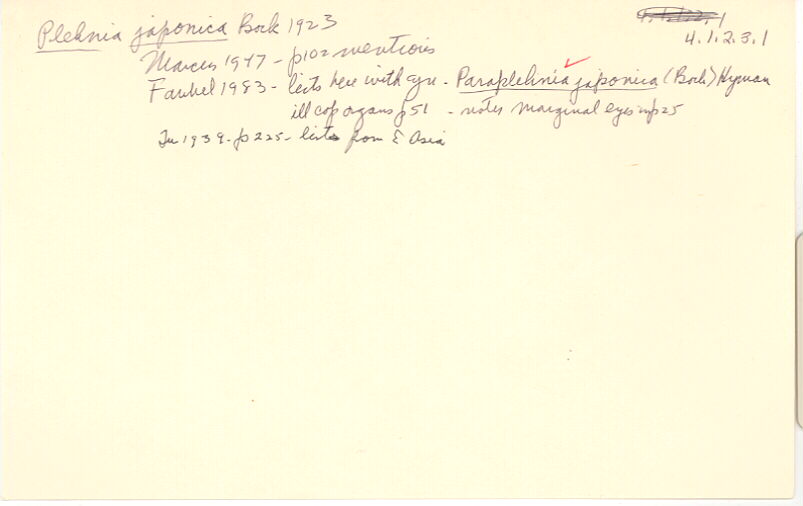 Plehnia japonica Bock 1923
4.1.2.3.1
Marcus 1947 - p102 mentions
Faubel 1983 - lists here with syn - Paraplehnia japonica (Bock) Hyman
ill cop organs p51 - notes marginal eyes in p25
Tu 1939 - p225 - lists from E Asia